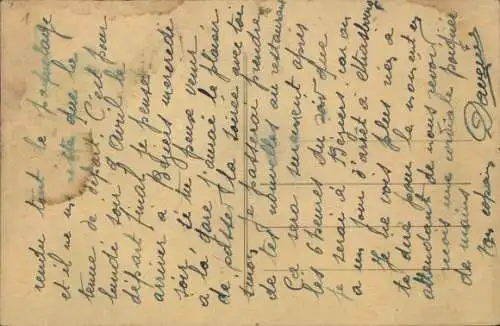 rendu tout le paquetage
et il ne me reste que la
tenue de départ. C'est pour
lundi soir 9 avril le
départ final. Je pense
arriver à Béziers mercredi
soir, si tu peux venir
à la gare j'aurai le plaisir
de passer la soirée avec toi
sinon je passerai prendre
de tes nouvelles au restaurant
Ça sera surement après
les 6 heures du soir que
je serai à Béziers, car on
a un jour d'arrêt à Strasbourg
Je ne vois plus rien à
te dire pour le moment en
attendant de nous revoir
reçois une cordiale poignée
de mains
Ton copain